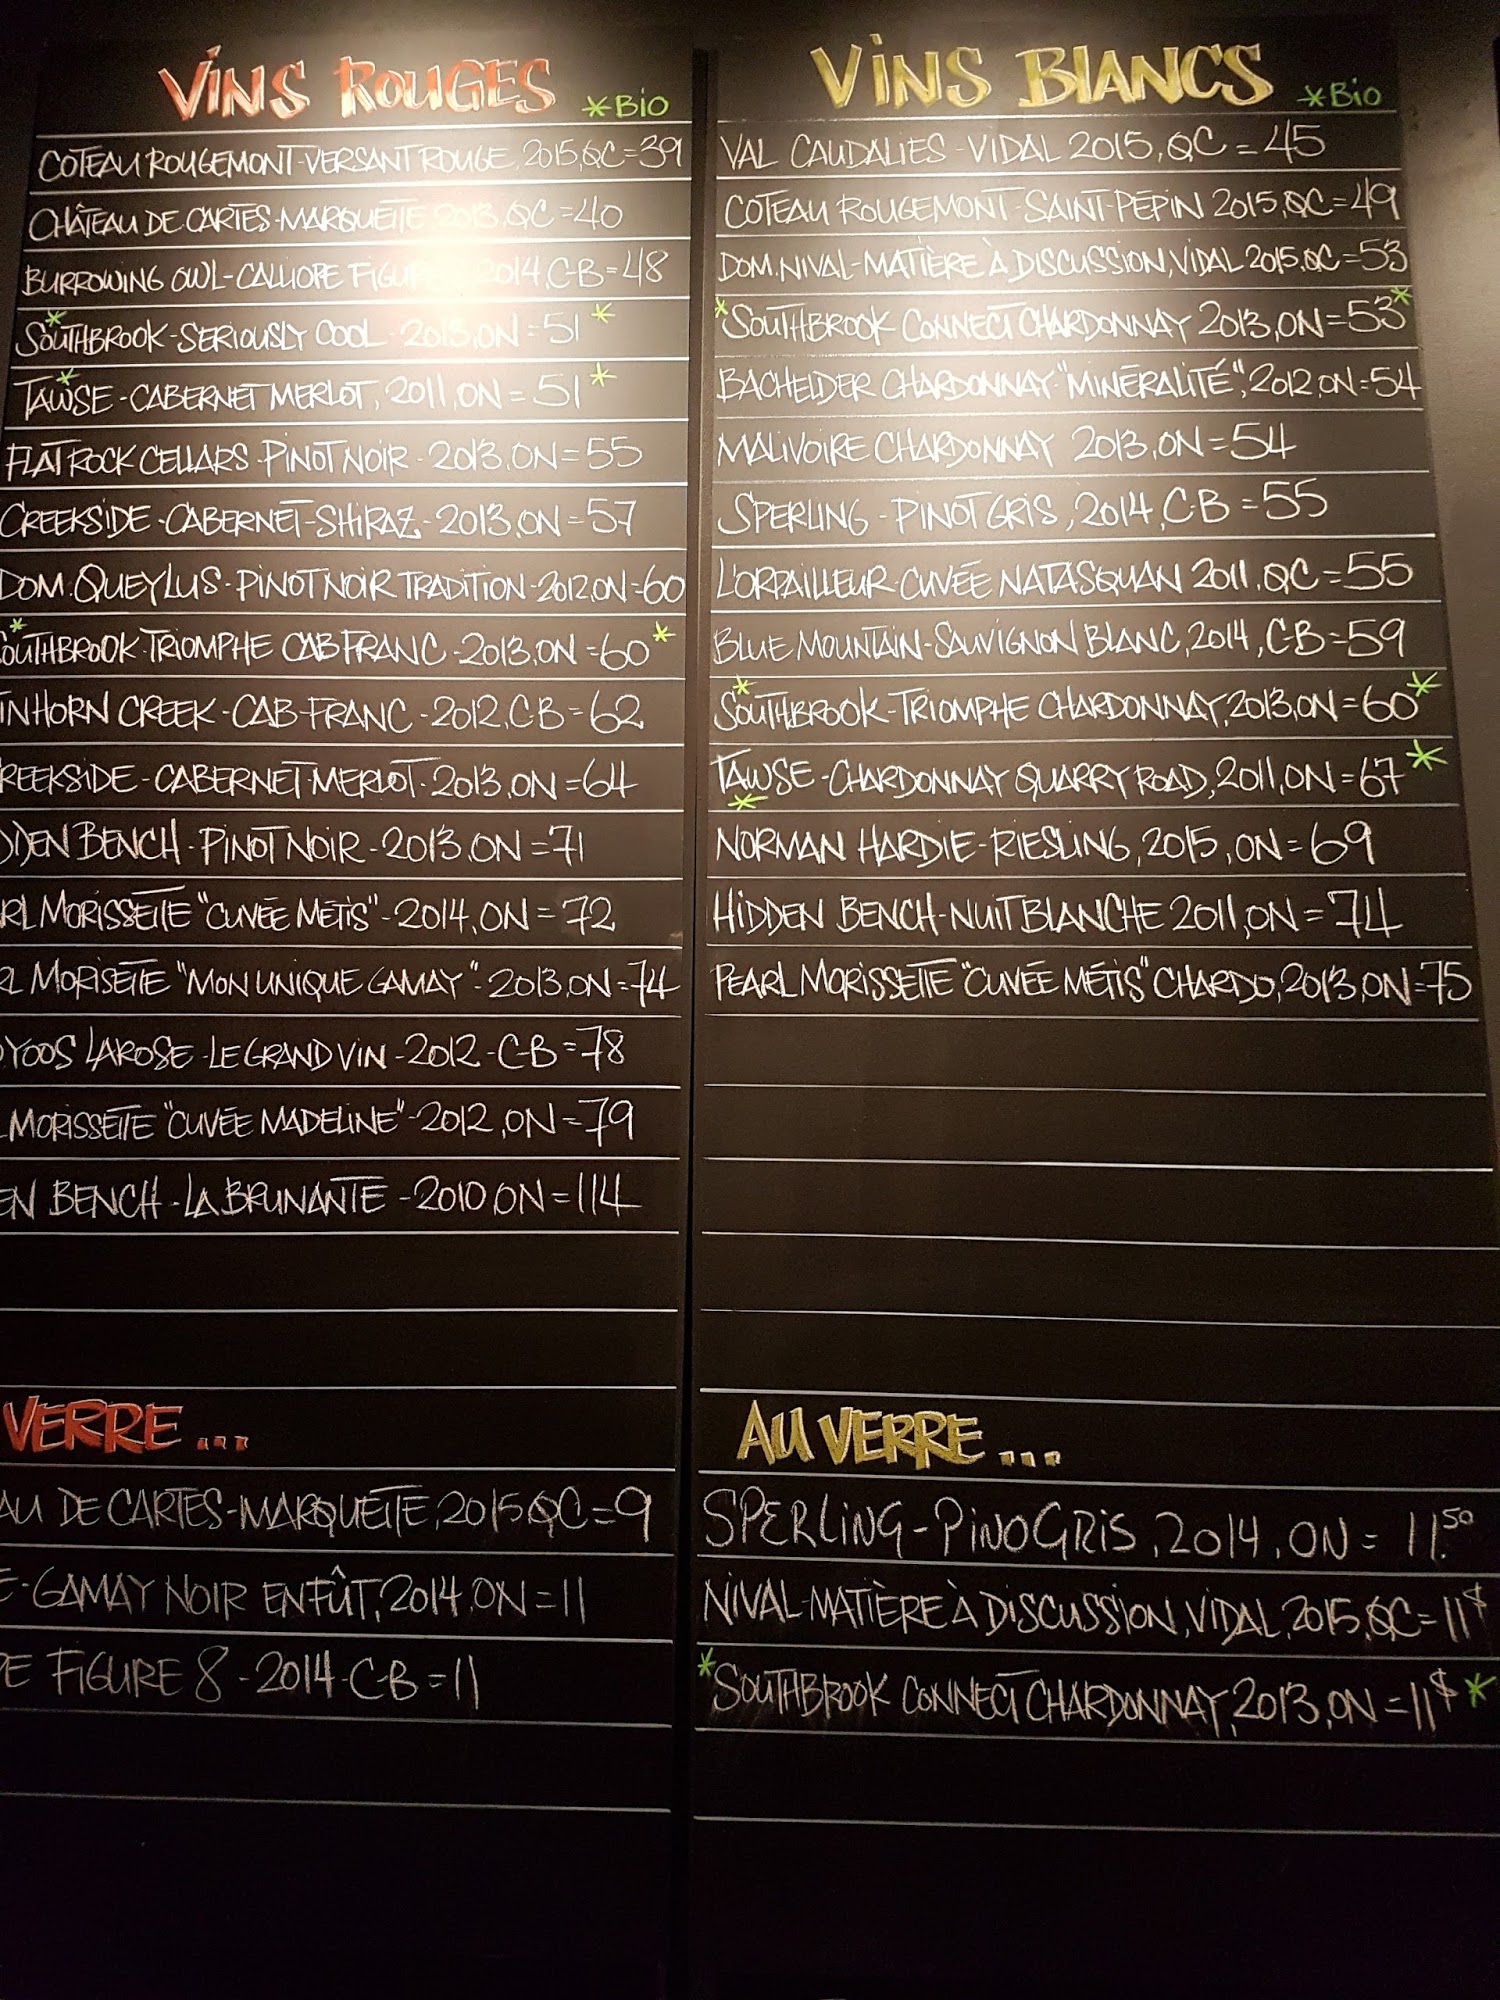 VINS ROUGES *BIO
COTEAU ROUGEMONT-VERSANT ROUGE, 2015, QC = 39
CHÂTEAU DE CARTES-MARQUETTE, 2013, QC = 40
BURROWING OWL-CALLIOPE 2014, C-B = 48
*SOUTHBROOK-SERIOUSLY COOL-2013, ON = 51*
*TAWSE-CABERNET MERLOT, 2011, ON = 51*
FLAT ROCK CELLARS-PINOT NOIR-2013, ON = 55
CREEKSIDE-CABERNET-SHIRAZ-2013, ON = 57
DOM. QUEYLUS-PINOT NOIR TRADITION-2012, ON = 60
*SOUTHBROOK-TRIOMPHE CAB FRANC-2013, ON = 60*
INHORN CREEK-CAB-FRANC-2012, C-B = 62
REEKSIDE-CABERNET MERLOT-2013, ON = 64
DDEN BENCH-PINOT NOIR-2013, ON = 71
RL MORISSETTE "CUVÉE MÉTIS"-2014, ON = 72
RL MORISETTE "MON UNIQUE GAMAY"-2013, ON = 74
OYOOS LAROSE-LE GRAND VIN-2012-C-B = 78
L MORISSETTE "CUVÉE MADELINE"-2012, ON = 79
EN BENCH-LA BRUNANTE-2010, ON = 114
VERRE...
AU DE CARTES-MARQUETTE, 2015, QC = 9
E-GAMAY NOIR EN FÛT, 2014, ON = 11
PE FIGURE 8-2014-C-B = 11
VINS BLANCS *BIO
VAL CAUDALIES-VIDAL 2015, QC = 45
COTEAU ROUGEMONT-SAINT-PÉPIN 2015, QC = 49
DOM. NIVAL-MATIÈRE À DISCUSSION, VIDAL 2015, QC = 53
*SOUTHBROOK CONNECT CHARDONNAY 2013, ON = 53*
BACHELDER CHARDONNAY-"MINÉRALITÉ", 2012, ON = 54
MALIVOIRE CHARDONNAY 2013, ON = 54
SPERLING-PINOT GRIS, 2014, C-B = 55
L'ORPAILLEUR-CUVÉE NATASQUAN 2011, QC = 55
BLUE MOUNTAIN-SAUVIGNON BLANC, 2014, C-B = 59
*SOUTHBROOK-TRIOMPHE CHARDONNAY, 2013, ON = 60*
*TAWSE-CHARDONNAY QUARRY ROAD, 2011, ON = 67*
NORMAN HARDIE-RIESLING, 2015, ON = 69
HIDDEN BENCH-NUIT BLANCHE 2011, ON = 74
PEARL MORISSETTE "CUVÉE MÉTIS" CHARDO, 2013, ON = 75
AU VERRE...
SPERLING-PINOGRIS, 2014, ON = 11.50
NIVAL-MATIÈRE À DISCUSSION, VIDAL, 2015, QC = 11$
*SOUTHBROOK CONNECT CHARDONNAY, 2013, ON = 11$*